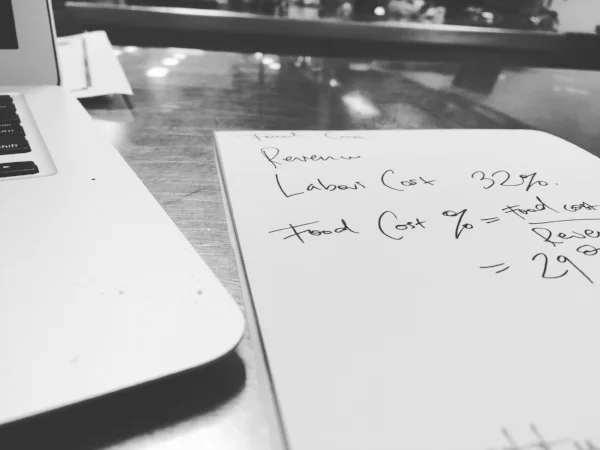 Food Cos
Revenue
Labour Cost 32%.
Food Cost % = Food cost
Reve
= 29%
shift